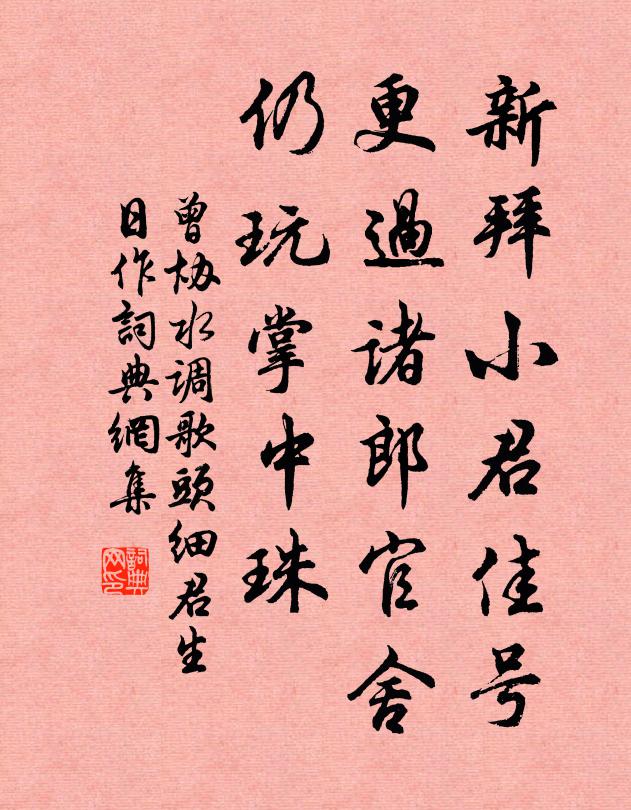 新拜小君佳号
更過诸郎官舍
仍玩掌中珠
曾协水调歌頭细君生
日作詞典網集
詞典网印